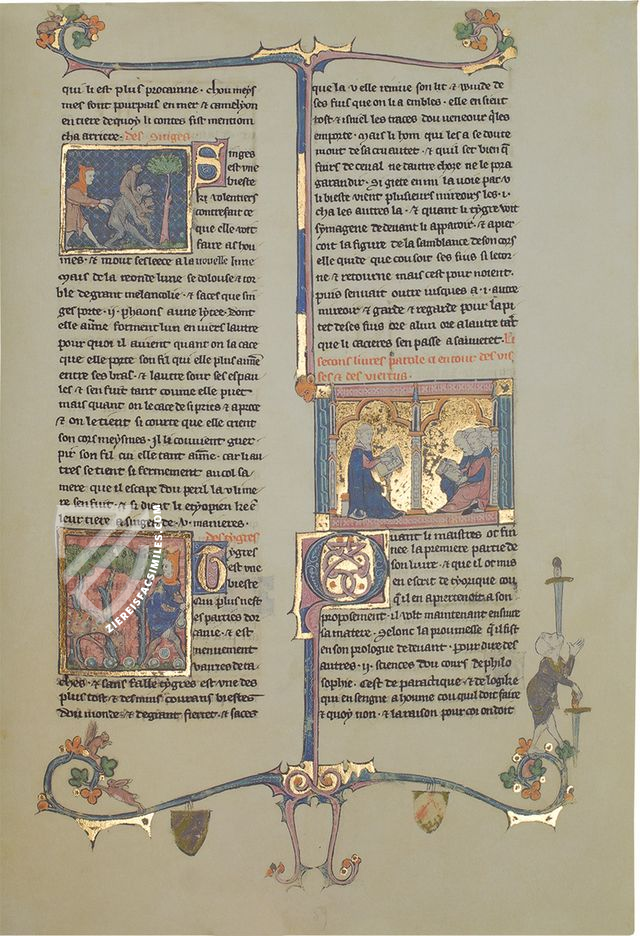 qui li est plus procainne · chou meys
mes sont pour pais en mer & camelyon
en tiere de quoy li contes fist mention
cha arriere · des singes
Singes
est une
bieste
ki volentiers
contrefait ce
que elle voit
faire as hou
mes · & mout se lieece a la nouvielle lune
mais de la reonde lune se dolouse & tor
ble de grant melancolie · & saces que sin
ges porte · ij · phaons a une lytee · dont
elle aime forment lun en viers lautre
pour quoi il avient quant on la cace
que elle porte son fil qui elle plus aime
entre ses bras · & lautre sour ses espau
les & sen fuit tant coume elle puet
mais quant on le cace de si pries & aproce
& on le tient si courte que elle crient
son cors meysmes · Il li couvient guer
pir son fil cui elle tant aime · car li au
tres se tient si fermement au col sa
mere que il escape dou peril la u li me
re sen fuit · & si dient li etyopien ke en
leur tiere a singes de · v · manieres ·
des tygres
Tygres
est une
bieste
qui plus nest
es parties dor
canie · & est
menuement
vairee de ta
ches · & sans faille tygres est une des
plus tost & des mius courans biestes
dou monde · & de grant fierret · & saces
que la u elle remue son lit & wuide de
ses fius que on li a embles · elle en sieut
tost & isniel les traces dou veneour qi les
emporte · mais li hom qui les a se doute
mout de sa cruautet · & quil set bien que
fuirs de ceval ne dautre choze ne le pora
garandir · Si giete en mi la voie par u
li bieste vient plusieurs mireoirs les · i ·
cha les autres la · & quant li tygre voit
symagene dedevant li apparoir · & apier
coit la figure de la samblance de son cors
elle quide que cou soit ses fius si lecor
ne & retourne mais cest pour noient ·
puis sen vait outre iusques a · i · autre
mireour & garde & regarde pour la pi
tet de ses fius ore al un ore a lautre tant
que li cacieres sen passe a sauvetet · Li
secons livres parole ci entour des vis
ses & des viertus ·
Quant li maistres ot fin
nee la premiere partie de
son livre · & que il ot mis
en escrit de theorique cou
qil en apiertenoit a son
proposement · il volt maintenant ensiure
sa matere · Selonc la proumesse qil fist
en son prologue de devant · pour dire des
autres · ij · sciences dou cours de philo
sophie · Cest de paractique & de logike
qui ensengne a houme cou quil doit faire
& quoy non · & la raison pour cou on doit
ZIEREISFACSIMILES.COM